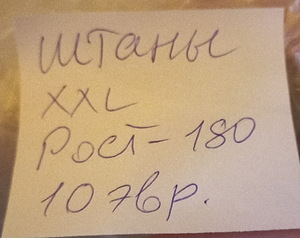 штаны
XXL
Рост-180
1076р.